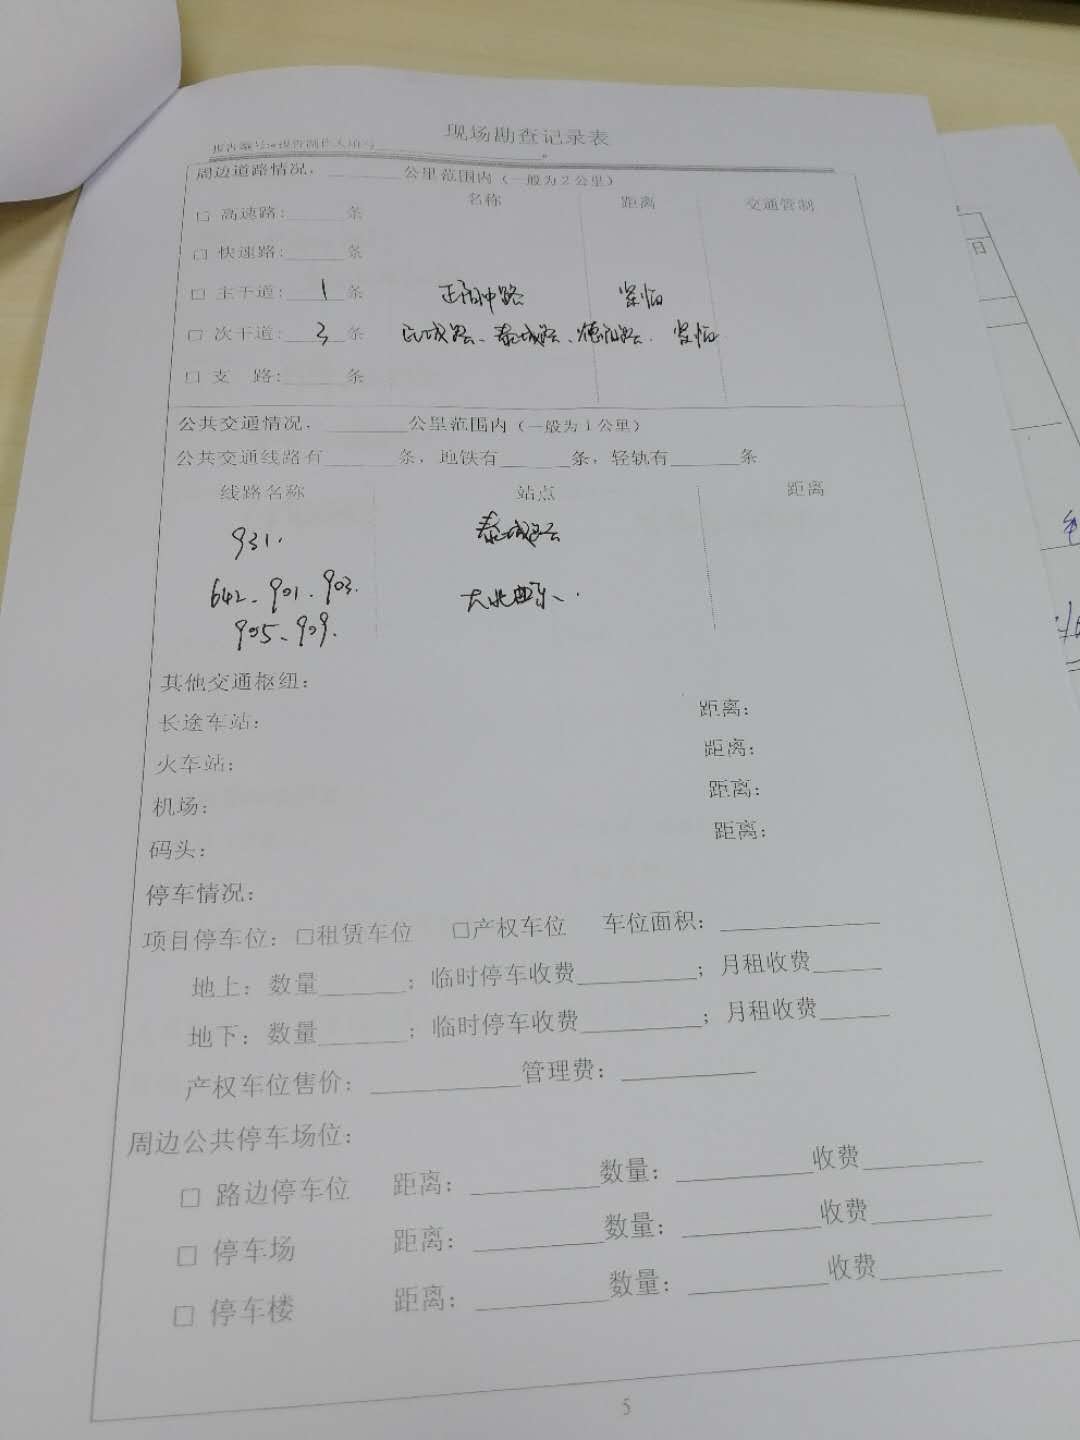 现场勘查记录表
报告编号:
周边道路情况，______公里范围内（一般为2公里）
名称 距离 交通管制
□ 高速路:______条
□ 快速路:______条
□ 主干道: 1 条 紧临
□ 次干道: 3 条 民城路、泰城路、德阳路. 紧临
□ 支 路:______条
公共交通情况，______公里范围内（一般为1公里）
公共交通线路有______条，地铁有______条，轻轨有______条
线路名称 站点 距离
931. 泰城路
642、901、903.
905、909.
其他交通枢纽:
长途车站: 距离:
火车站: 距离:
机场: 距离:
码头: 距离:
停车情况:
项目停车位: □租赁车位 □产权车位 车位面积: ______
地上: 数量______; 临时停车收费______; 月租收费______
地下: 数量______; 临时停车收费______; 月租收费______
产权车位售价: ______管理费: ______
周边公共停车场位:
□ 路边停车位 距离: ______数量: ______收费______
□ 停车场 距离: ______数量: ______收费______
□ 停车楼 距离: ______数量: ______收费______
5
日